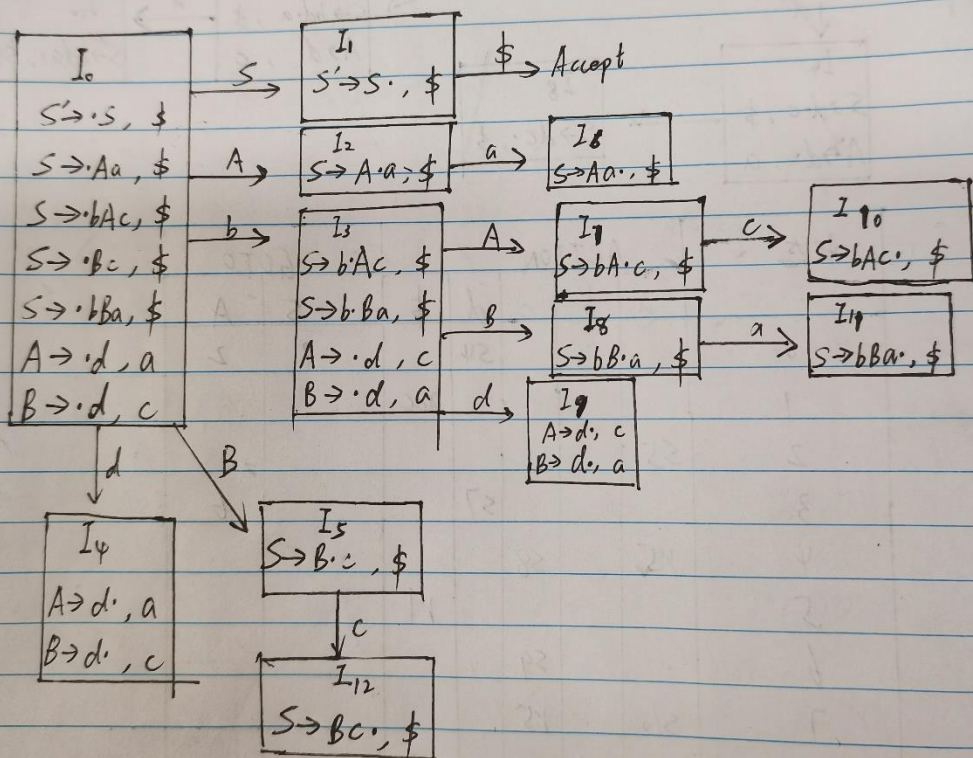 I₀
S'→·S, $
S→·Aa, $
S→·bAc, $
S→·Bc, $
S→·bBa, $
A→·d, a
B→·d, c
S
I₁
S'→S·, $
$
Accept
A
I₂
S→A·a, $
a
S→Aa·, $
b
I₃
S→b·Ac, $
S→b·Ba, $
A→·d, c
B→·d, a
A
I₇
S→bA·c, $
c
I₁₀
S→bAc·, $
B
I₈
S→bB·a, $
a
I₁₁
S→bBa·, $
d
I₉
A→d·, c
B→d·, a
d
I₄
A→d·, a
B→d·, c
B
I₅
S→B·c, $
c
I₁₂
S→Bc·, $